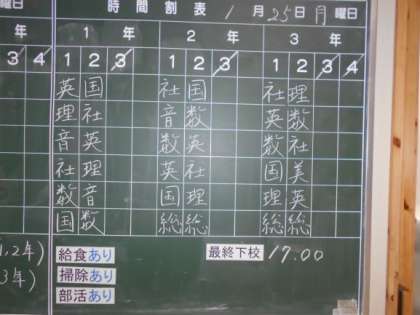 時間割表 1月25日月曜日
年 1年 2年 3年
3 4 1 2 3 1 2 3 1 2 3 4
英 国 社 国 社 理
理 社 音 数 英 数
音 英 数 英 数 社
社 理 英 社 国 美
数 音 国 理 理 英
国 数 総 総 総 総
1,2年)
3年)
給食あり 最終下校 17.00
掃除あり
部活あり